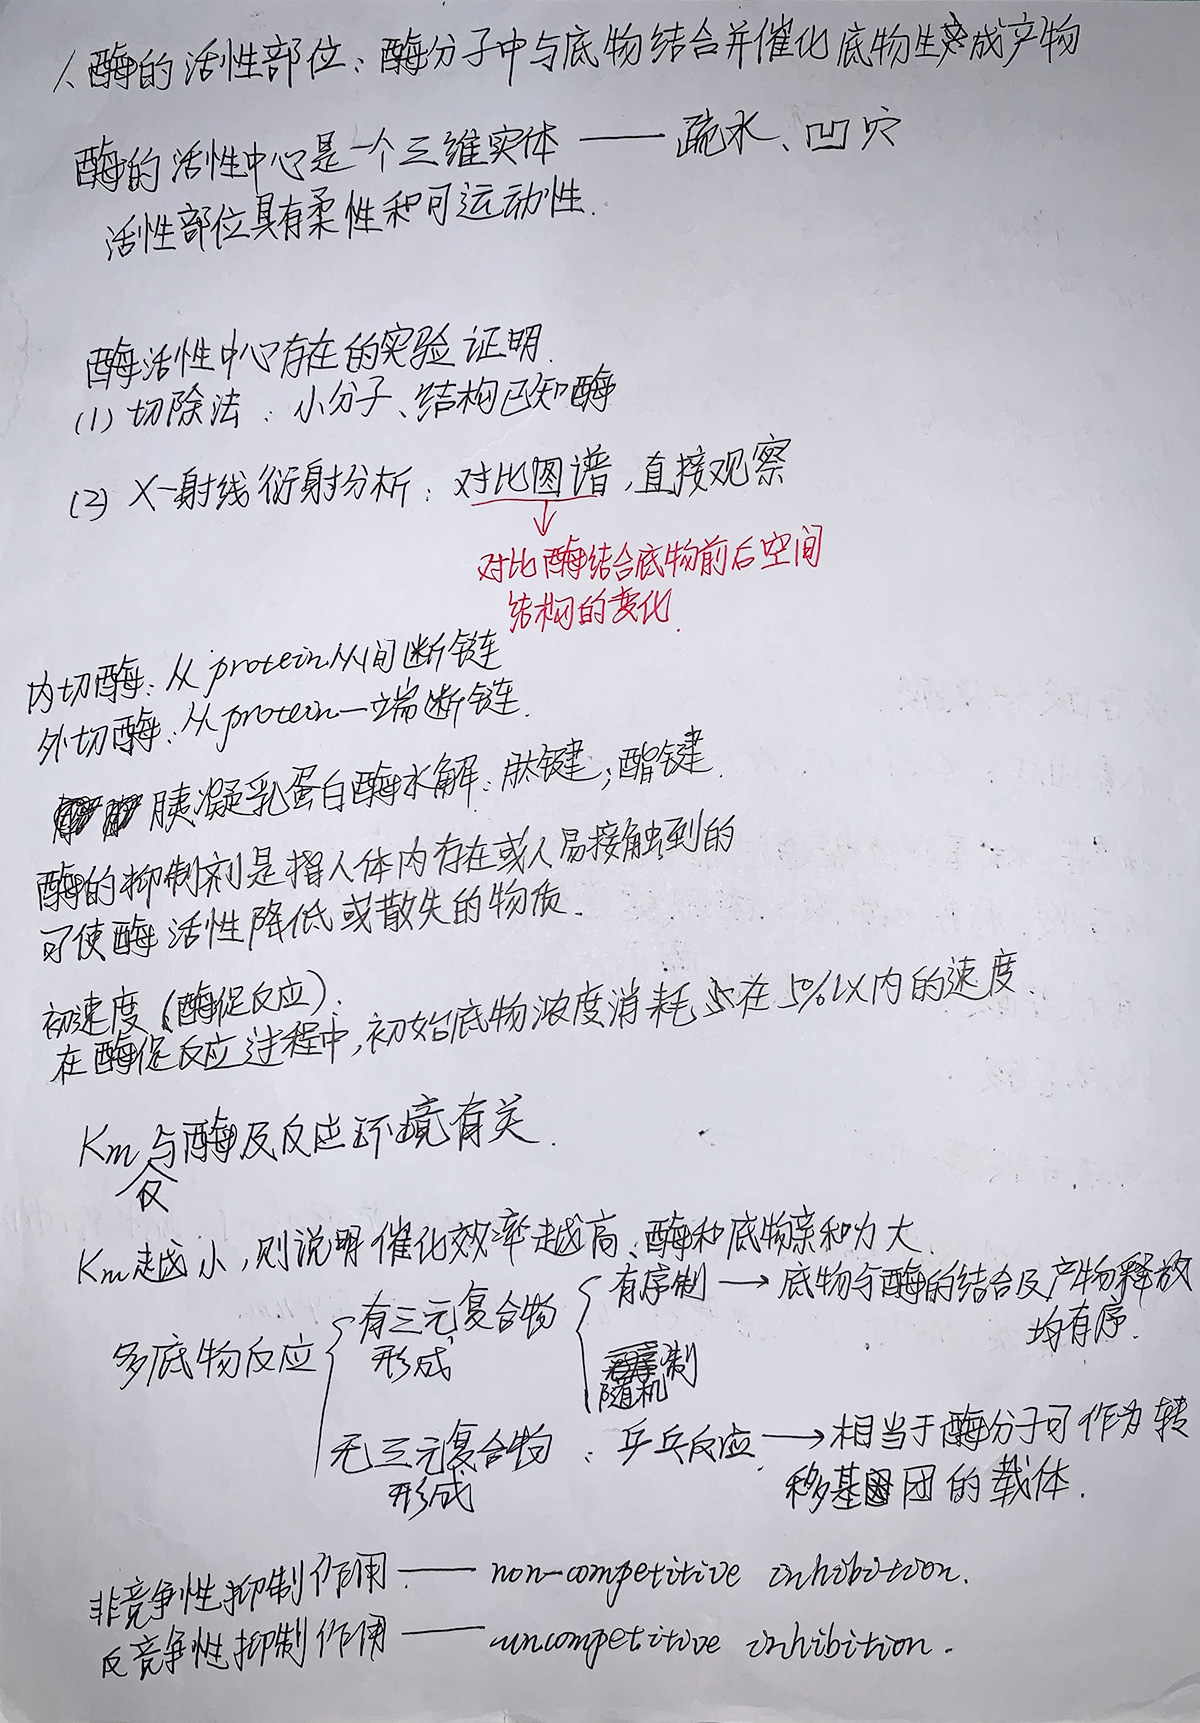 1、酶的活性部位：酶分子中与底物结合并催化底物生成产物
酶的活性中心是一个三维实体 —— 疏水、凹穴
活性部位具有柔性和可运动性.
酶活性中心存在的实验证明.
(1) 切除法：小分子、结构已知酶
(2) X-射线衍射分析：对比图谱，直接观察
对比酶结合底物前后空间
结构的变化.
内切酶：从protein从间断链
外切酶：从protein一端断链.
胰凝乳蛋白酶水解：肽键；酯键.
酶的抑制剂是指人体内存在或人易接触到的
可使酶活性降低或散失的物质.
初速度（酶促反应）.
在酶促反应过程中，初始底物浓度消耗在5%以内的速度.
Km仅与酶及反应环境有关.
Km越小，则说明催化效率越高、酶和底物亲和力大.
多底物反应
有三元复合物形成
有序制 → 底物与酶的结合及产物释放
均有序.
随机制
无三元复合物形成 ：乒乓反应. → 相当于酶分子可作为转
移基团的载体.
非竞争性抑制作用. —— non-competitive inhibition.
反竞争性抑制作用 —— uncompetitive inhibition.